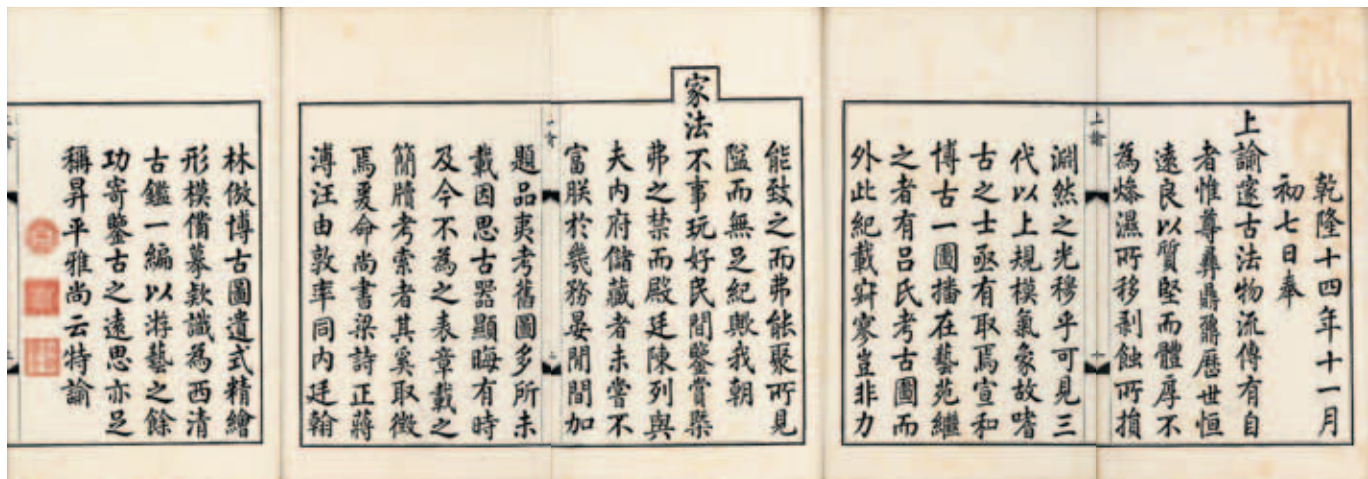 乾隆十四年十一月
初七日奉
上諭邃古法物流傳有自
者惟尊彝鼎鼐歷世恒
遠良以質堅而體厚不
為燥濕所移剥蝕所損
淵然之光穆乎可見三
代以上規模氣象故嗜
古之士亟有取焉宣和
博古一圖播在藝苑繼
之者有呂氏考古圖而
外此紀載寂寥豈非力
能致之而弗能聚所見
隘而無足紀歟我朝
家法不事玩好民間鑒賞槩
弗之禁而殿廷陳列與
夫内府儲藏者未嘗不
富朕於幾務晏閒間加
題品夷考舊圖多所未
載因思古器顯晦有時
及今不為之表章載之
簡牘考索者其奚取徵
焉爰命尚書梁詩正蔣
溥汪由敦率同内廷翰
林倣博古圖遺式精繪
形模備摹欵識為西清
古鑑一編以游藝之餘
功寄鑒古之遠思亦足
稱昇平雅尚云特諭
上諭